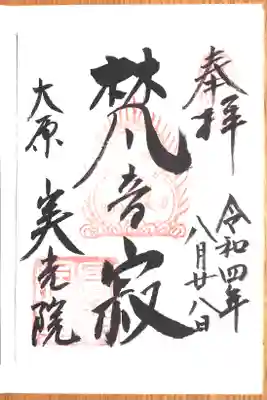 奉拝
令和四年
八月廿八日
梵音寂
大原 実光院